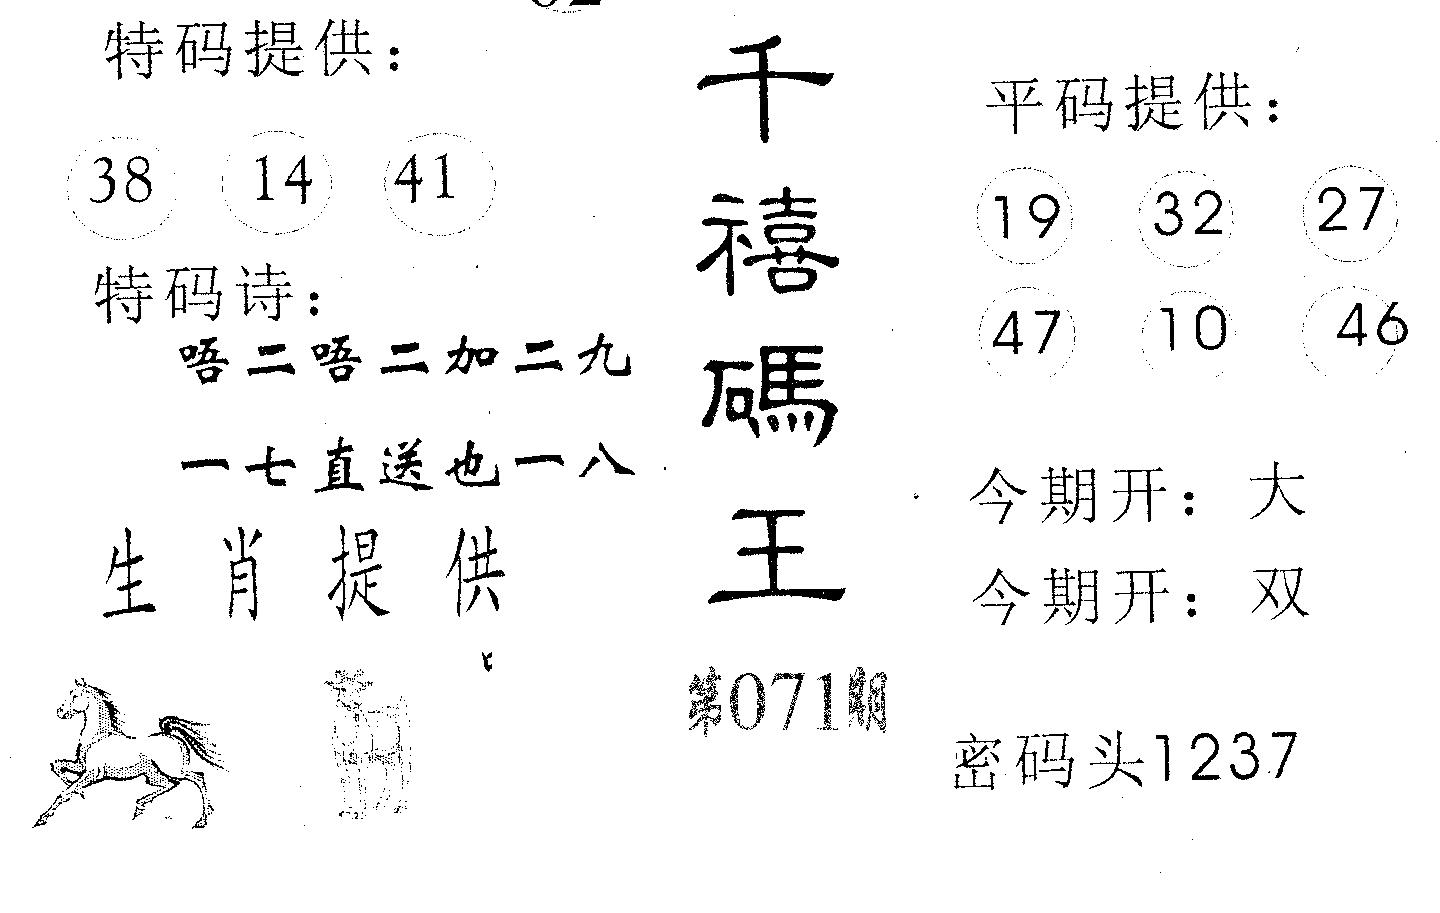 特码提供：
38 14 41
特码诗：
唔二唔二加二九
一七直送也一八
生肖提供
千禧碼王
第071期
平码提供：
19 32 27
47 10 46
今期开：大
今期开：双
密码头1237